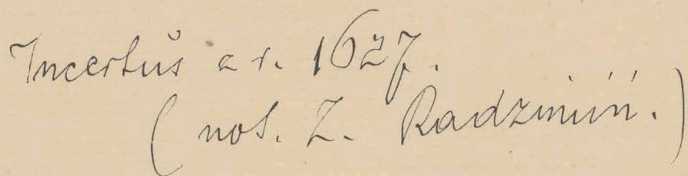 Incertus z r. 1627.
( not. Z. Radzimiń. )